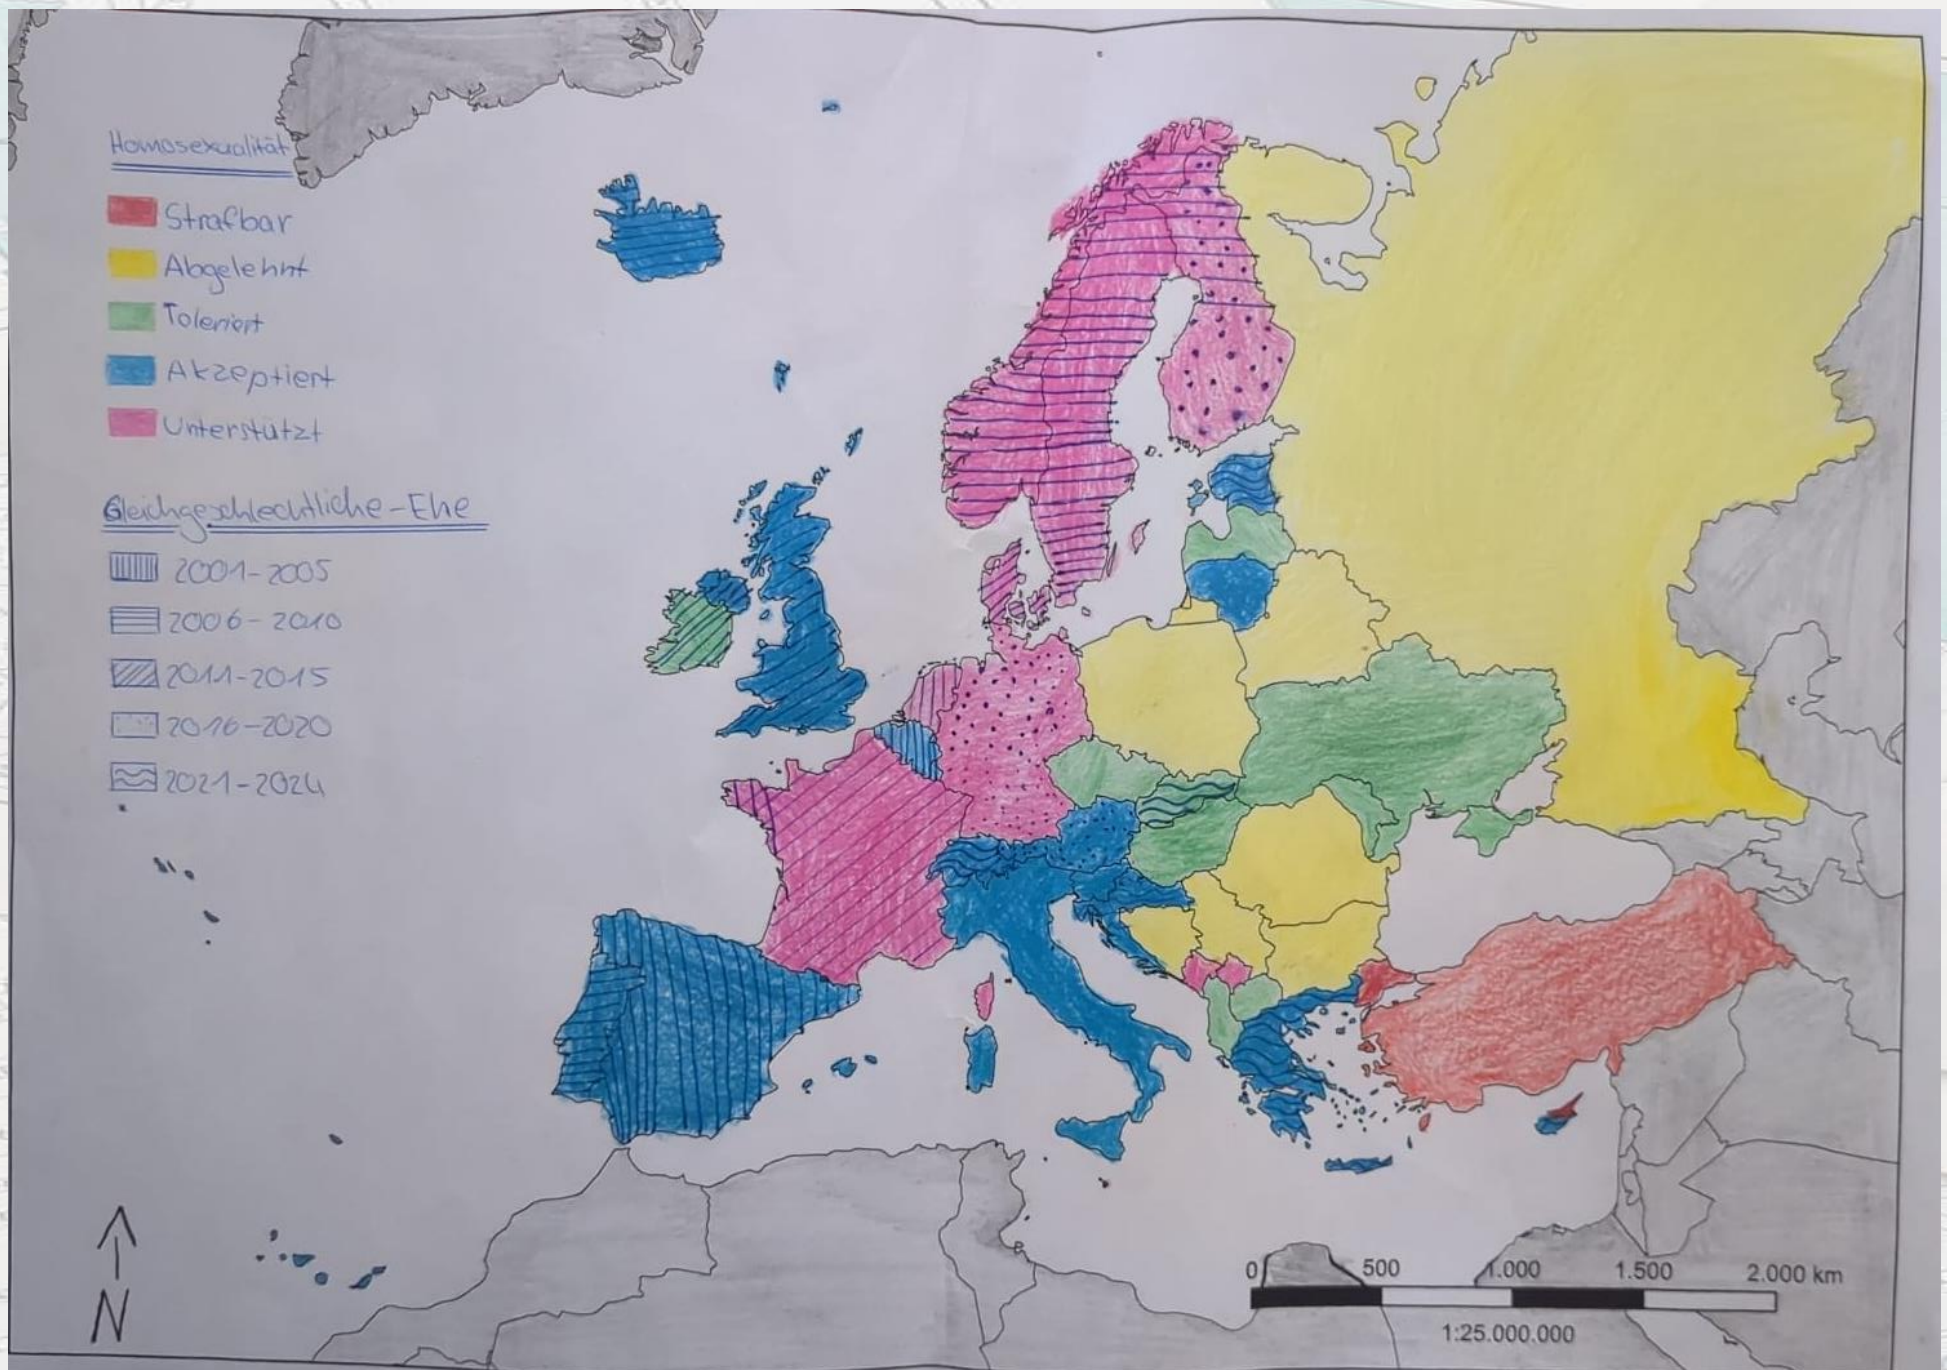 Homosexualität
Strafbar
Abgelehnt
Toleriert
Akzeptiert
Unterstützt
Gleichgeschlechtliche-Ehe
2001-2005
2006-2010
2011-2015
2016-2020
2021-2024
N
0 500 1.000 1.500 2.000 km
1:25.000.000